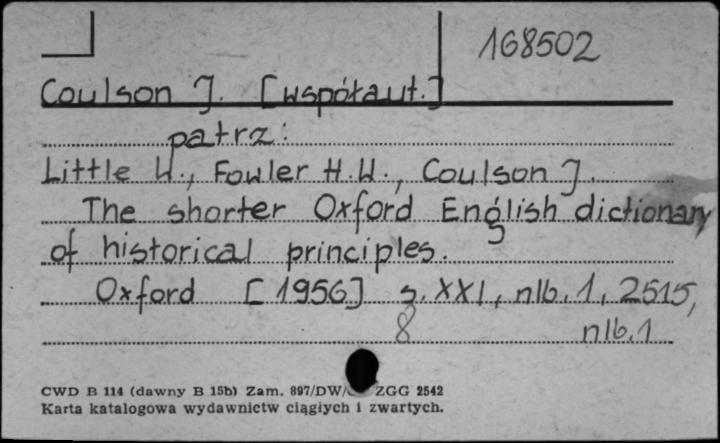 168502
Coulson J. [współaut.]
patrz:
Little W., Fowler H.W., Coulson J.
The shorter Oxford English dictionary
of historical principles.
Oxford [1956] s. XXI, nlb. 1, 2515,
8 nlb. 1
CWD B 114 (dawny B 15b) Zam. 897/DW/ ZGG 2542
Karta katalogowa wydawnictw ciągłych i zwartych.